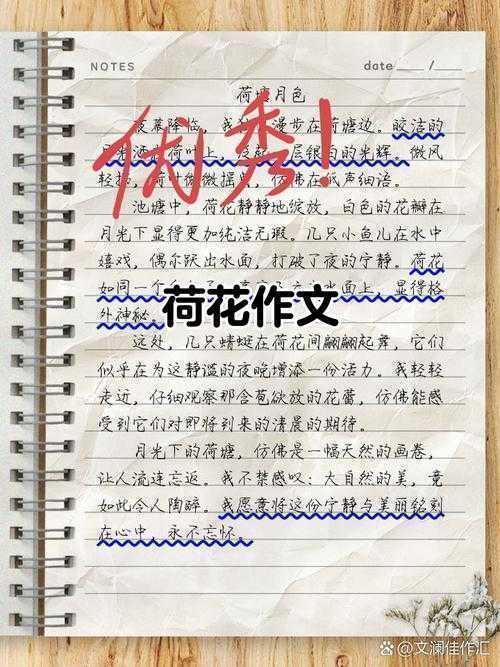 NOTES date ___ / ___
荷塘月色
夜幕降临，我独自漫步在荷塘边。皎洁的
月光洒在荷叶上，泛起一层银白的光辉。微风
轻拂，荷叶微微摇曳，仿佛在低声细语。
池塘中，荷花静静地绽放，白色的花瓣在
月光下显得更加纯洁无瑕。几只小鱼儿在水中
嬉戏，偶尔跃出水面，打破了夜的宁静。荷花
如同一个 水面上，显得格
外神秘。
远处，几只蜻蜓在荷花间翩翩起舞，它们
似乎在为这静谧的夜晚增添一份活力。我轻轻
走近，仔细观察那含苞欲放的花蕾，仿佛能感
受到它们对即将到来的清晨的期待。
月光下的荷塘，仿佛是一幅天然的画卷，
让人流连忘返。我不禁感叹：大自然的美，竟
如此令人陶醉。我愿意将这份宁静与美丽铭刻
在心中，永不忘怀。
优秀！
荷花作文
文澜佳作汇